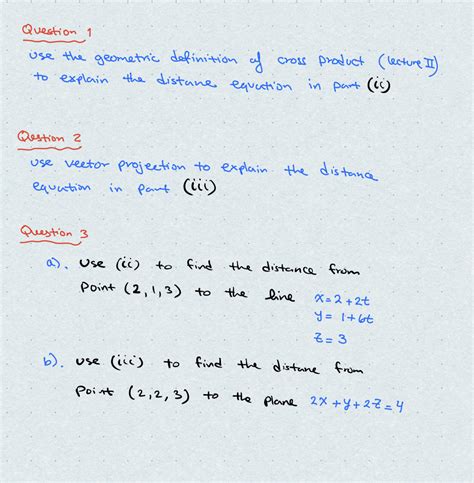 Question 1
use the geometric definition of cross product (lecture II)
to explain the distane equation in part (ii)
Qestion 2
use vector projection to explain the distance
equation in part (iii)
Question 3
a). use (ii) to find the distance from
point (2,1,3) to the line x=2+2t
y= 1+6t
z=3
b). use (iii) to find the distane from
point (2,2,3) to the plane 2x+y+2z=4